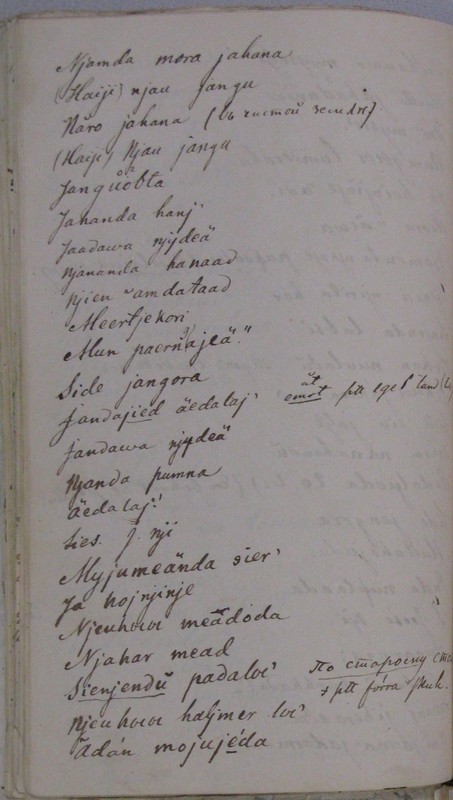 Njamda mora jahana
(Haiji) njau jangu
Näro jahana (въ чистой земли)
(Haiji) Njau jangu
Janguöbta
Jahanda hanji
Jaadawa njydeä
Njananda hanaad
Njien amdataad
Meertjekori
Mun paernajeä"
Side jangora
Jandajied äedalaj' ät emot ptt eget land
Jandawa njydeä
Njanda pumna
äedalaj'
sies. J. nji
Myjumeända sier'
Ja hojnjinje
Njeuhowi meädoda
Njahar mead
Sienjendū padalwi' По старому
Njeuhowi haljmer wi' ptt förra
ädán mojujeda